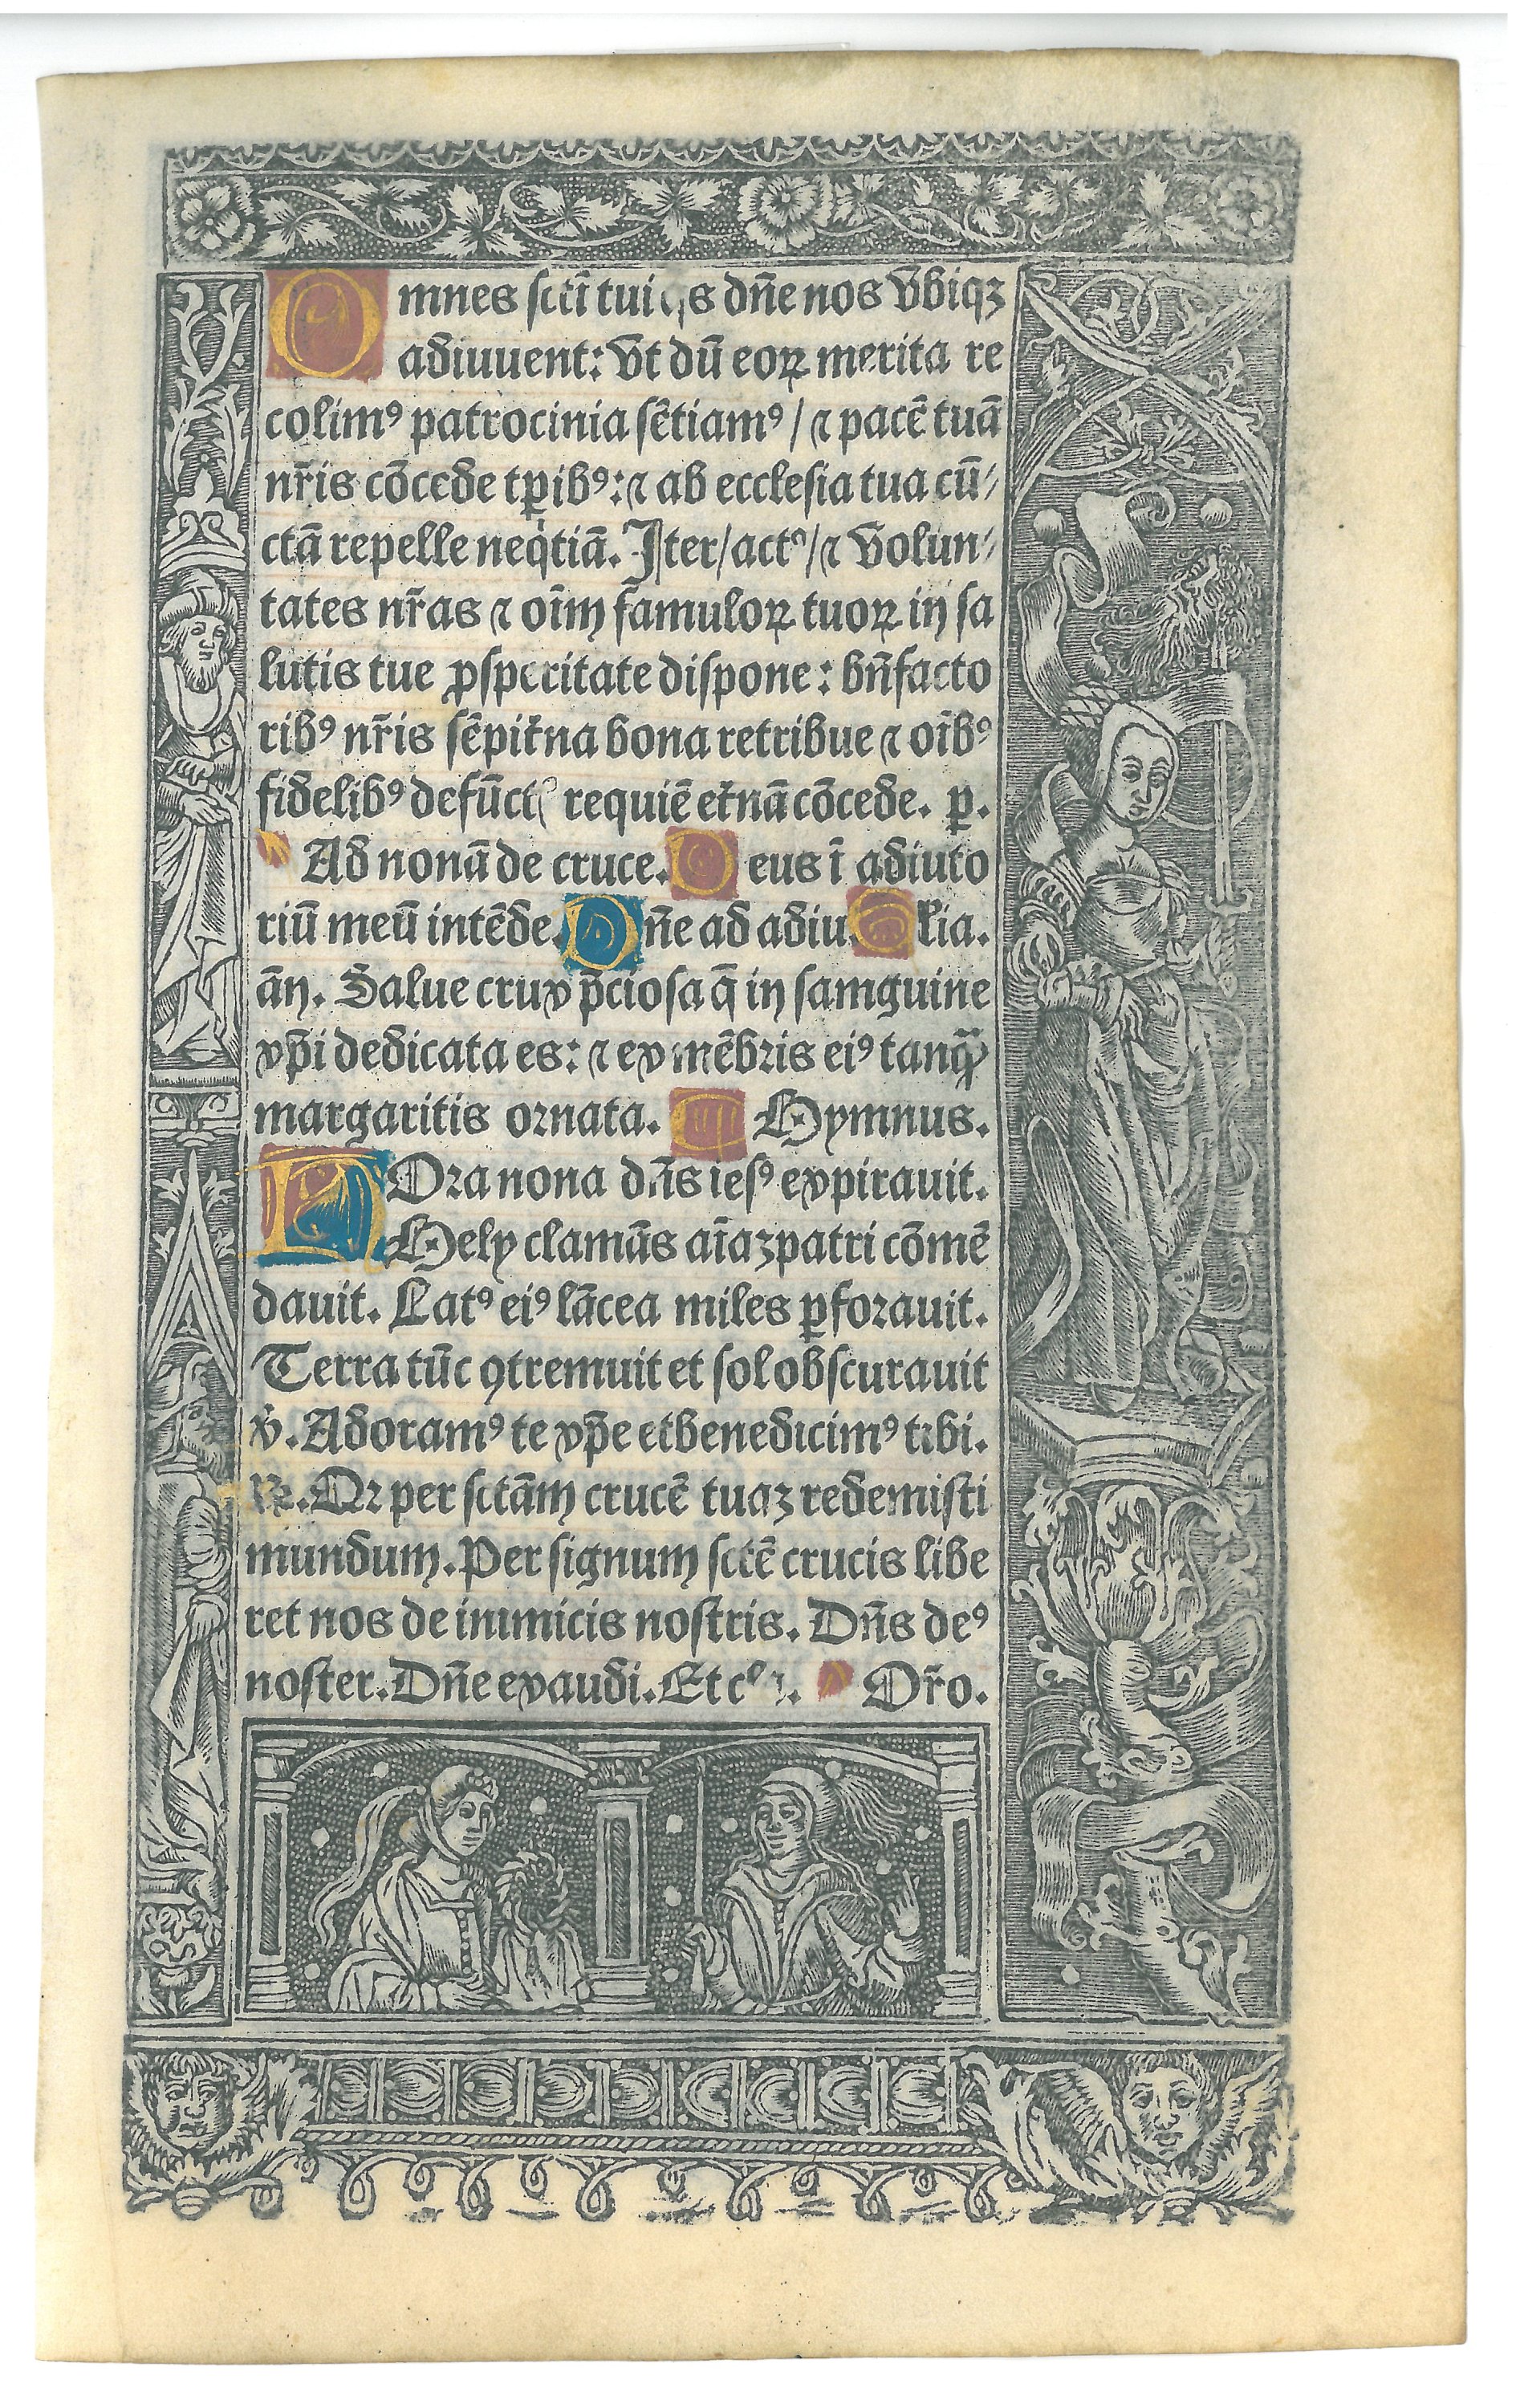 Omnes sctī tui q̄s dn̄e nos vbiqꝫ
adiuuent: vt dū eoꝝ merita re
colimꝰ patrocinia sētiamꝰ / ⁊ pacē tuā
nr̄is cōcede tꝑibꝰ: ⁊ ab ecclesia tua cū⸗
ctā repelle neqͥtiā. Iter / actꝰ / ⁊ volun⸗
tates nr̄as ⁊ oīm famuloꝝ tuoꝝ in sa
lutis tue ꝓsperitate dispone: bn̄facto
ribꝰ nr̄is sēpit̄na bona retribue ⁊ oībꝰ
fidelibꝰ defūctꝭ requiē et̄nā cōcede. ꝑ.
Ad nonā de cruce. Deus ī adiuto
riū meū intēde. Dn̄e ad adiu. G lia.
an̄. Salue crux p̄ciosa q̄ in samguine
xp̄i dedicata es: ⁊ ex mēbris eiꝰ tanqᷓ
margaritis ornata. Hymnus.
HOra nona dn̄s iesꝰ expirauit.
Hely clamās aīaꝫ patri cōmē
dauit. Latꝰ eiꝰ lācea miles ꝑforauit.
Terra tūc ꝯtremuit et sol obscurauit
℣. Adoramꝰ te xp̄e et benedicimꝰ tibi.
℟. Qꝛ per sctām crucē tuaꝫ redemisti
mundum. Per signum sctē crucis libe
ret nos de inimicis nostris. Dn̄s deꝰ
noster. Dn̄e exaudi. Et c Or̄o.